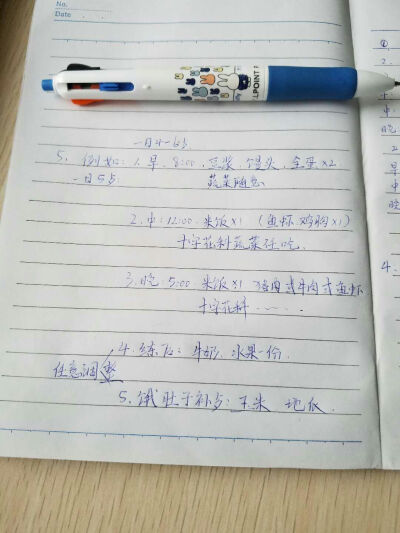 No.
Date
5. 例如: 1. 早. 8:00. 豆浆、馒头、全蛋×2
一日5点: 蔬菜随意
2. 中: 12:00. 米饭×1 (鱼虾.鸡胸×1)
十字花科蔬菜任吃.
3. 晚. 5:00. 米饭×1 猪肉或牛肉或鱼虾
十字花科 ......
4. 练后: 牛奶. 水果一份.
任意调整
5. 饿肚子补点: 玉米 地瓜.
LPOINT PEN
①
2.
中:
晚
2
早
中:
晚
4.